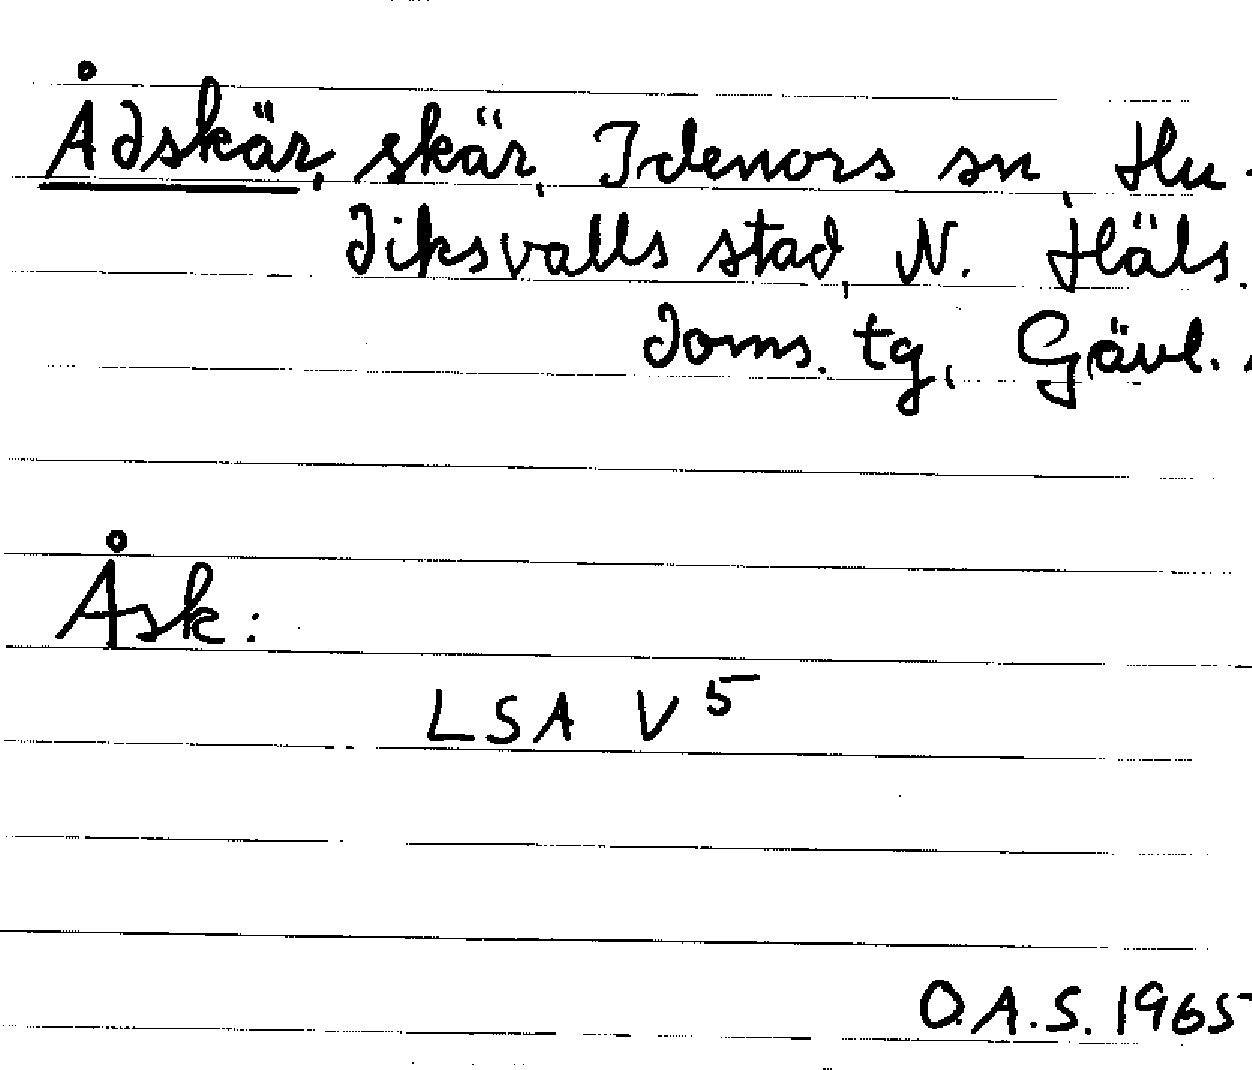 Ådskär, skär, Idenors sn, Hu-
diksvalls stad, N. Häls.
doms. tg, Gävl.
Åsk:
LSA V5
O.A.S. 1965